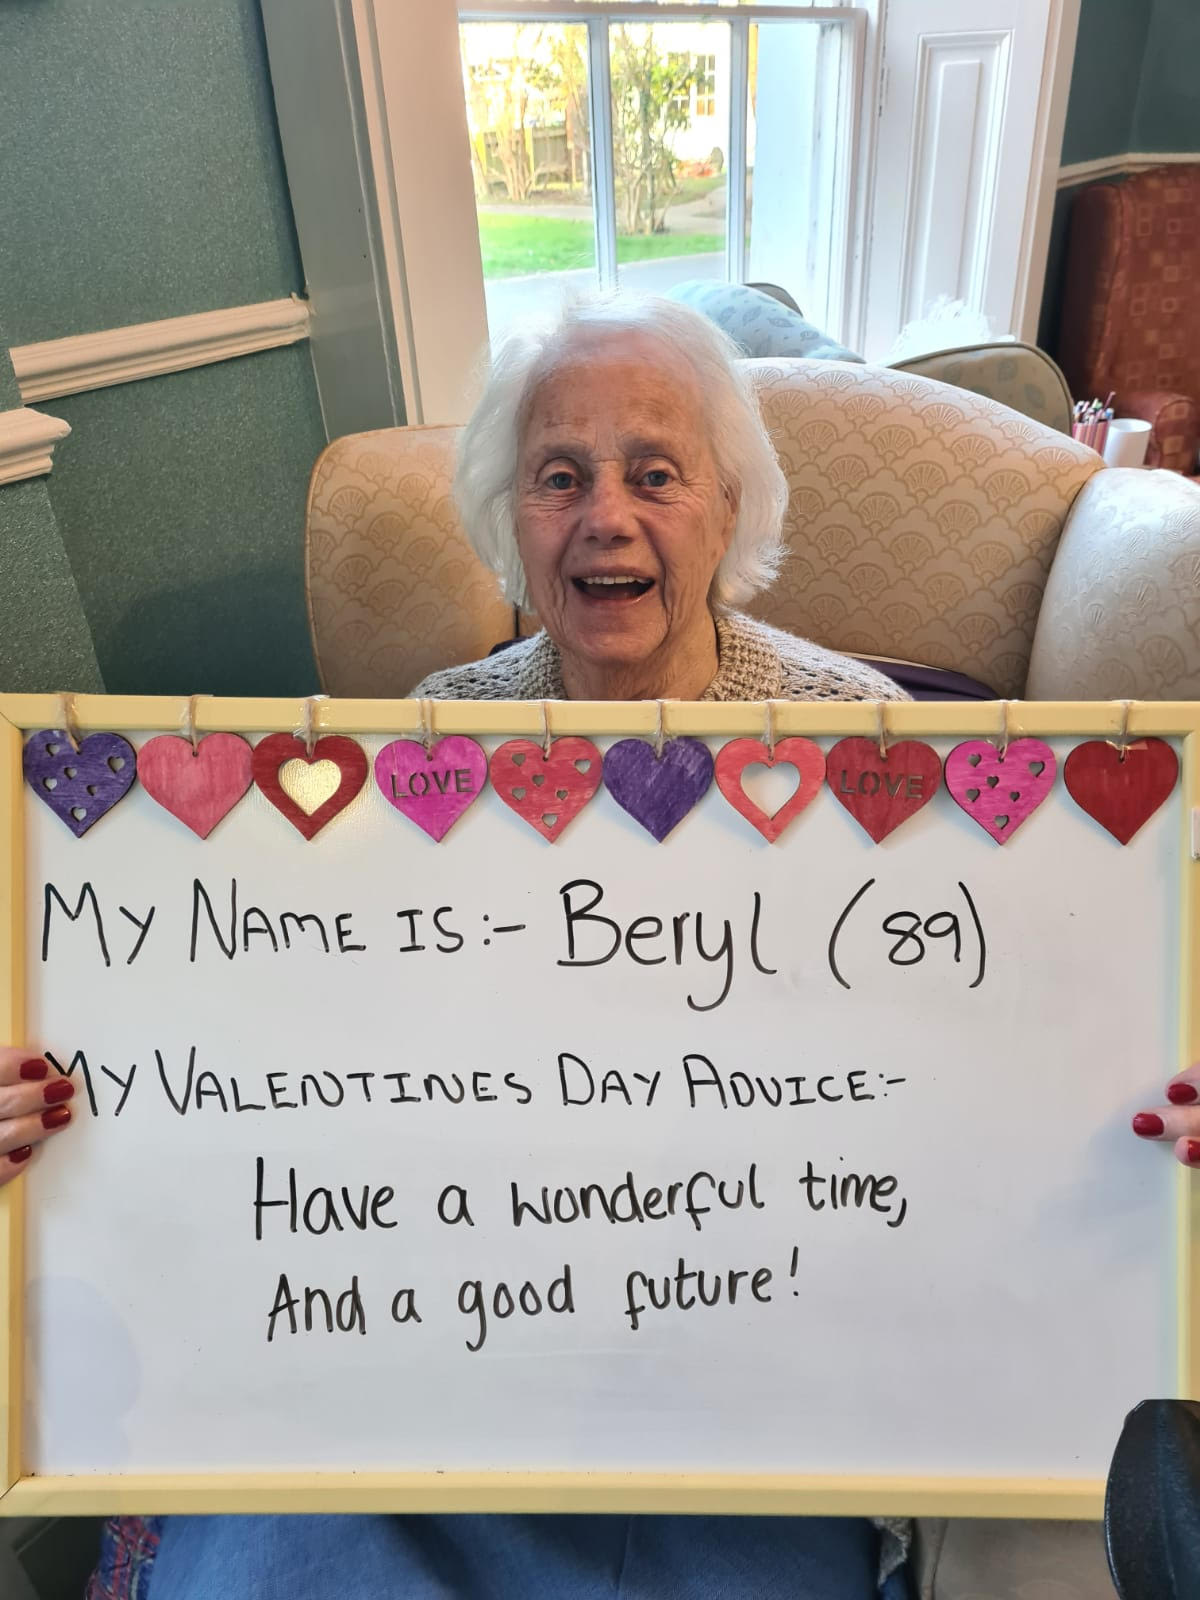 LOVE LOVE
My NAME IS:- Beryl (89)
My VALENTINES DAY ADVICE:-
Have a wonderful time,
And a good future!